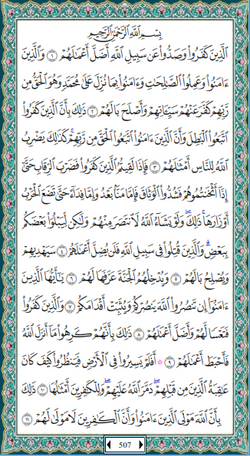 بِسْمِ ٱللَّهِ ٱلرَّحْمَٰنِ ٱلرَّحِيمِ
ٱلَّذِينَ كَفَرُوا۟ وَصَدُّوا۟ عَن سَبِيلِ ٱللَّهِ أَضَلَّ أَعْمَٰلَهُمْ ١ وَٱلَّذِينَ
ءَامَنُوا۟ وَعَمِلُوا۟ ٱلصَّٰلِحَٰتِ وَءَامَنُوا۟ بِمَا نُزِّلَ عَلَىٰ مُحَمَّدٍ وَهُوَ ٱلْحَقُّ مِن
رَّبِّهِمْ كَفَّرَ عَنْهُمْ سَيِّـَٔاتِهِمْ وَأَصْلَحَ بَالَهُمْ ٢ ذَٰلِكَ بِأَنَّ ٱلَّذِينَ كَفَرُوا۟
ٱتَّبَعُوا۟ ٱلْبَٰطِلَ وَأَنَّ ٱلَّذِينَ ءَامَنُوا۟ ٱتَّبَعُوا۟ ٱلْحَقَّ مِن رَّبِّهِمْ كَذَٰلِكَ يَضْرِبُ
ٱللَّهُ لِلنَّاسِ أَمْثَٰلَهُمْ ٣ فَإِذَا لَقِيتُمُ ٱلَّذِينَ كَفَرُوا۟ فَضَرْبَ ٱلرِّقَابِ حَتَّىٰٓ
إِذَآ أَثْخَنتُمُوهُمْ فَشُدُّوا۟ ٱلْوَثَاقَ فَإِمَّا مَنًّۢا بَعْدُ وَإِمَّا فِدَآءً حَتَّىٰ تَضَعَ ٱلْحَرْبُ
أَوْزَارَهَا ذَٰلِكَ ۖ وَلَوْ يَشَآءُ ٱللَّهُ لَٱنتَصَرَ مِنْهُمْ وَلَٰكِن لِّيَبْلُوَا۟ بَعْضَكُم
بِبَعْضٍ ۗ وَٱلَّذِينَ قُتِلُوا۟ فِى سَبِيلِ ٱللَّهِ فَلَن يُضِلَّ أَعْمَٰلَهُمْ ٤ سَيَهْدِيهِمْ
وَيُصْلِحُ بَالَهُمْ ٥ وَيُدْخِلُهُمُ ٱلْجَنَّةَ عَرَّفَهَا لَهُمْ ٦ يَٰٓأَيُّهَا ٱلَّذِينَ
ءَامَنُوٓا۟ إِن تَنصُرُوا۟ ٱللَّهَ يَنصُرْكُمْ وَيُثَبِّتْ أَقْدَامَكُمْ ٧ وَٱلَّذِينَ كَفَرُوا۟
فَتَعْسًا لَّهُمْ وَأَضَلَّ أَعْمَٰلَهُمْ ٨ ذَٰلِكَ بِأَنَّهُمْ كَرِهُوا۟ مَآ أَنزَلَ ٱللَّهُ
فَأَحْبَطَ أَعْمَٰلَهُمْ ٩ ۞ أَفَلَمْ يَسِيرُوا۟ فِى ٱلْأَرْضِ فَيَنظُرُوا۟ كَيْفَ كَانَ
عَٰقِبَةُ ٱلَّذِينَ مِن قَبْلِهِمْ ۚ دَمَّرَ ٱللَّهُ عَلَيْهِمْ ۖ وَلِلْكَٰفِرِينَ أَمْثَٰلُهَا ١٠ ذَٰلِكَ
بِأَنَّ ٱللَّهَ مَوْلَى ٱلَّذِينَ ءَامَنُوا۟ وَأَنَّ ٱلْكَٰفِرِينَ لَا مَوْلَىٰ لَهُمْ ١١
507